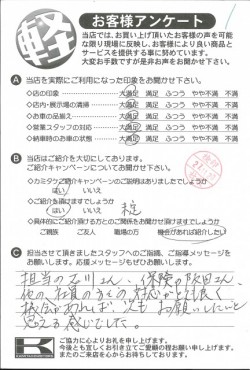 軽
お客様アンケート
当店では、お買い上げ頂いたお客様の声を可能
な限り現場に反映し、お客様により良い商品と
サービスを提供する事に努めています。
大変お手数ですが是非お声をお聞かせ下さい。
A 当店を実際にご利用になった印象をお聞かせ下さい。
◇店の印象 大満足 満足 ふつう やや不満 不満
◇店内・展示場の清掃 大満足 満足 ふつう やや不満 不満
◇お車の品揃え 大満足 満足 ふつう やや不満 不満
◇営業スタッフの対応 大満足 満足 ふつう やや不満 不満
◇納車時のお車の状態 大満足 満足 ふつう やや不満 不満
B 当店はご紹介を大切にしております。
ご紹介キャンペーンについてお聞かせ下さい。
◇カミタケご紹介キャンペーンのご説明はありましたでしょうか
はい いいえ
◇ご紹介を頂けますでしょうか
はい いいえ
◇具体的にご紹介頂ける方とのご関係をお聞かせ頂けますでしょうか
ご親戚 ご友人 職場の方 機会があれば紹介したい
C 担当させて頂きましたスタッフへのご指摘、ご指導を
お願いします。応援メッセージもぜひお願いします。
担当の石川さん、保険の飯田さん、
他の社員の方々の対応がとても良く
機会があれば、次もお願いしたいと
思える感じでした。
K
ご協力に心よりお礼を申し上げます。
今後とも宜しくお引き立てご愛顧の程お願い申し上げます。
またのご来店を心からお待ちしております。